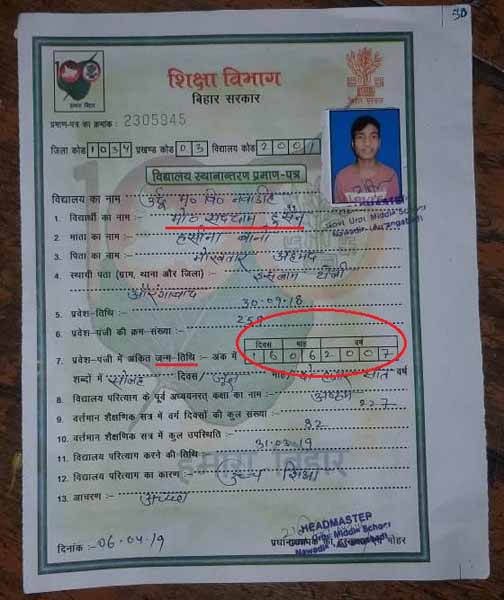 30
शिक्षा विभाग
बिहार सरकार
प्रमाण-पत्र का क्रमांक : 2305945
जिला कोड 1034 प्रखण्ड कोड 03 विद्यालय कोड 2001
विद्यालय स्थानान्तरण प्रमाण-पत्र
विद्यालय का नाम : उर्दू म० वि० नवाडीह
1. विद्यार्थी का नाम :- मो० सद्दाम हुसैन
2. माता का नाम :- हसीना बानो
3. पिता का नाम :- अहमद
4. स्थायी पता (ग्राम, थाना और जिला) : इस्लाम टोली
औरंगाबाद
5. प्रवेश-तिथि :- 30.09.18
6. प्रवेश-पंजी की क्रम-संख्या :- 259
दिवस माह वर्ष
7. प्रवेश-पंजी में अंकित जन्म-तिथि :- अंक में 16062007
शब्दों में सोलह दिवस/ जून माह दो हजार सात वर्ष
8. विद्यालय परित्याग के पूर्व अध्ययनरत् कक्षा का नाम :- अष्टम
9. वर्तमान शैक्षणिक सत्र में वर्ग दिवसों की कुल संख्या :- 227
10. वर्तमान शैक्षणिक सत्र में कुल उपस्थिति :- 82
11. विद्यालय परित्याग करने की तिथि :- 31.03.19
12. विद्यालय परित्याग का कारण :- उच्च शिक्षा
13. आचरण :- अच्छा
हमारा बिहार
HEADMASTER
Govt. Urdu Middle School
Nawadih Aurangabad
दिनांक :- 06.04.19